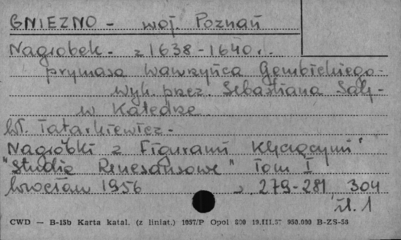 GNIEZNO - woj. Poznań
Nagrobek - z 1638-1640 r.
prymasa Wawrzyńca Gembickiego -
wyk. przez Sebastiana Salę -
w Katedrze
Wł. Tatarkiewicz -
Nagrobki z Figurami Klęczącymi"
"Studia Renesansowe" Tom I
Wrocław 1956 s. 279-281, 304
il. 1
CWD — B-15b Karta katal. (z liniat.) 1637/P Opol 500 950.000 B-ZS-50